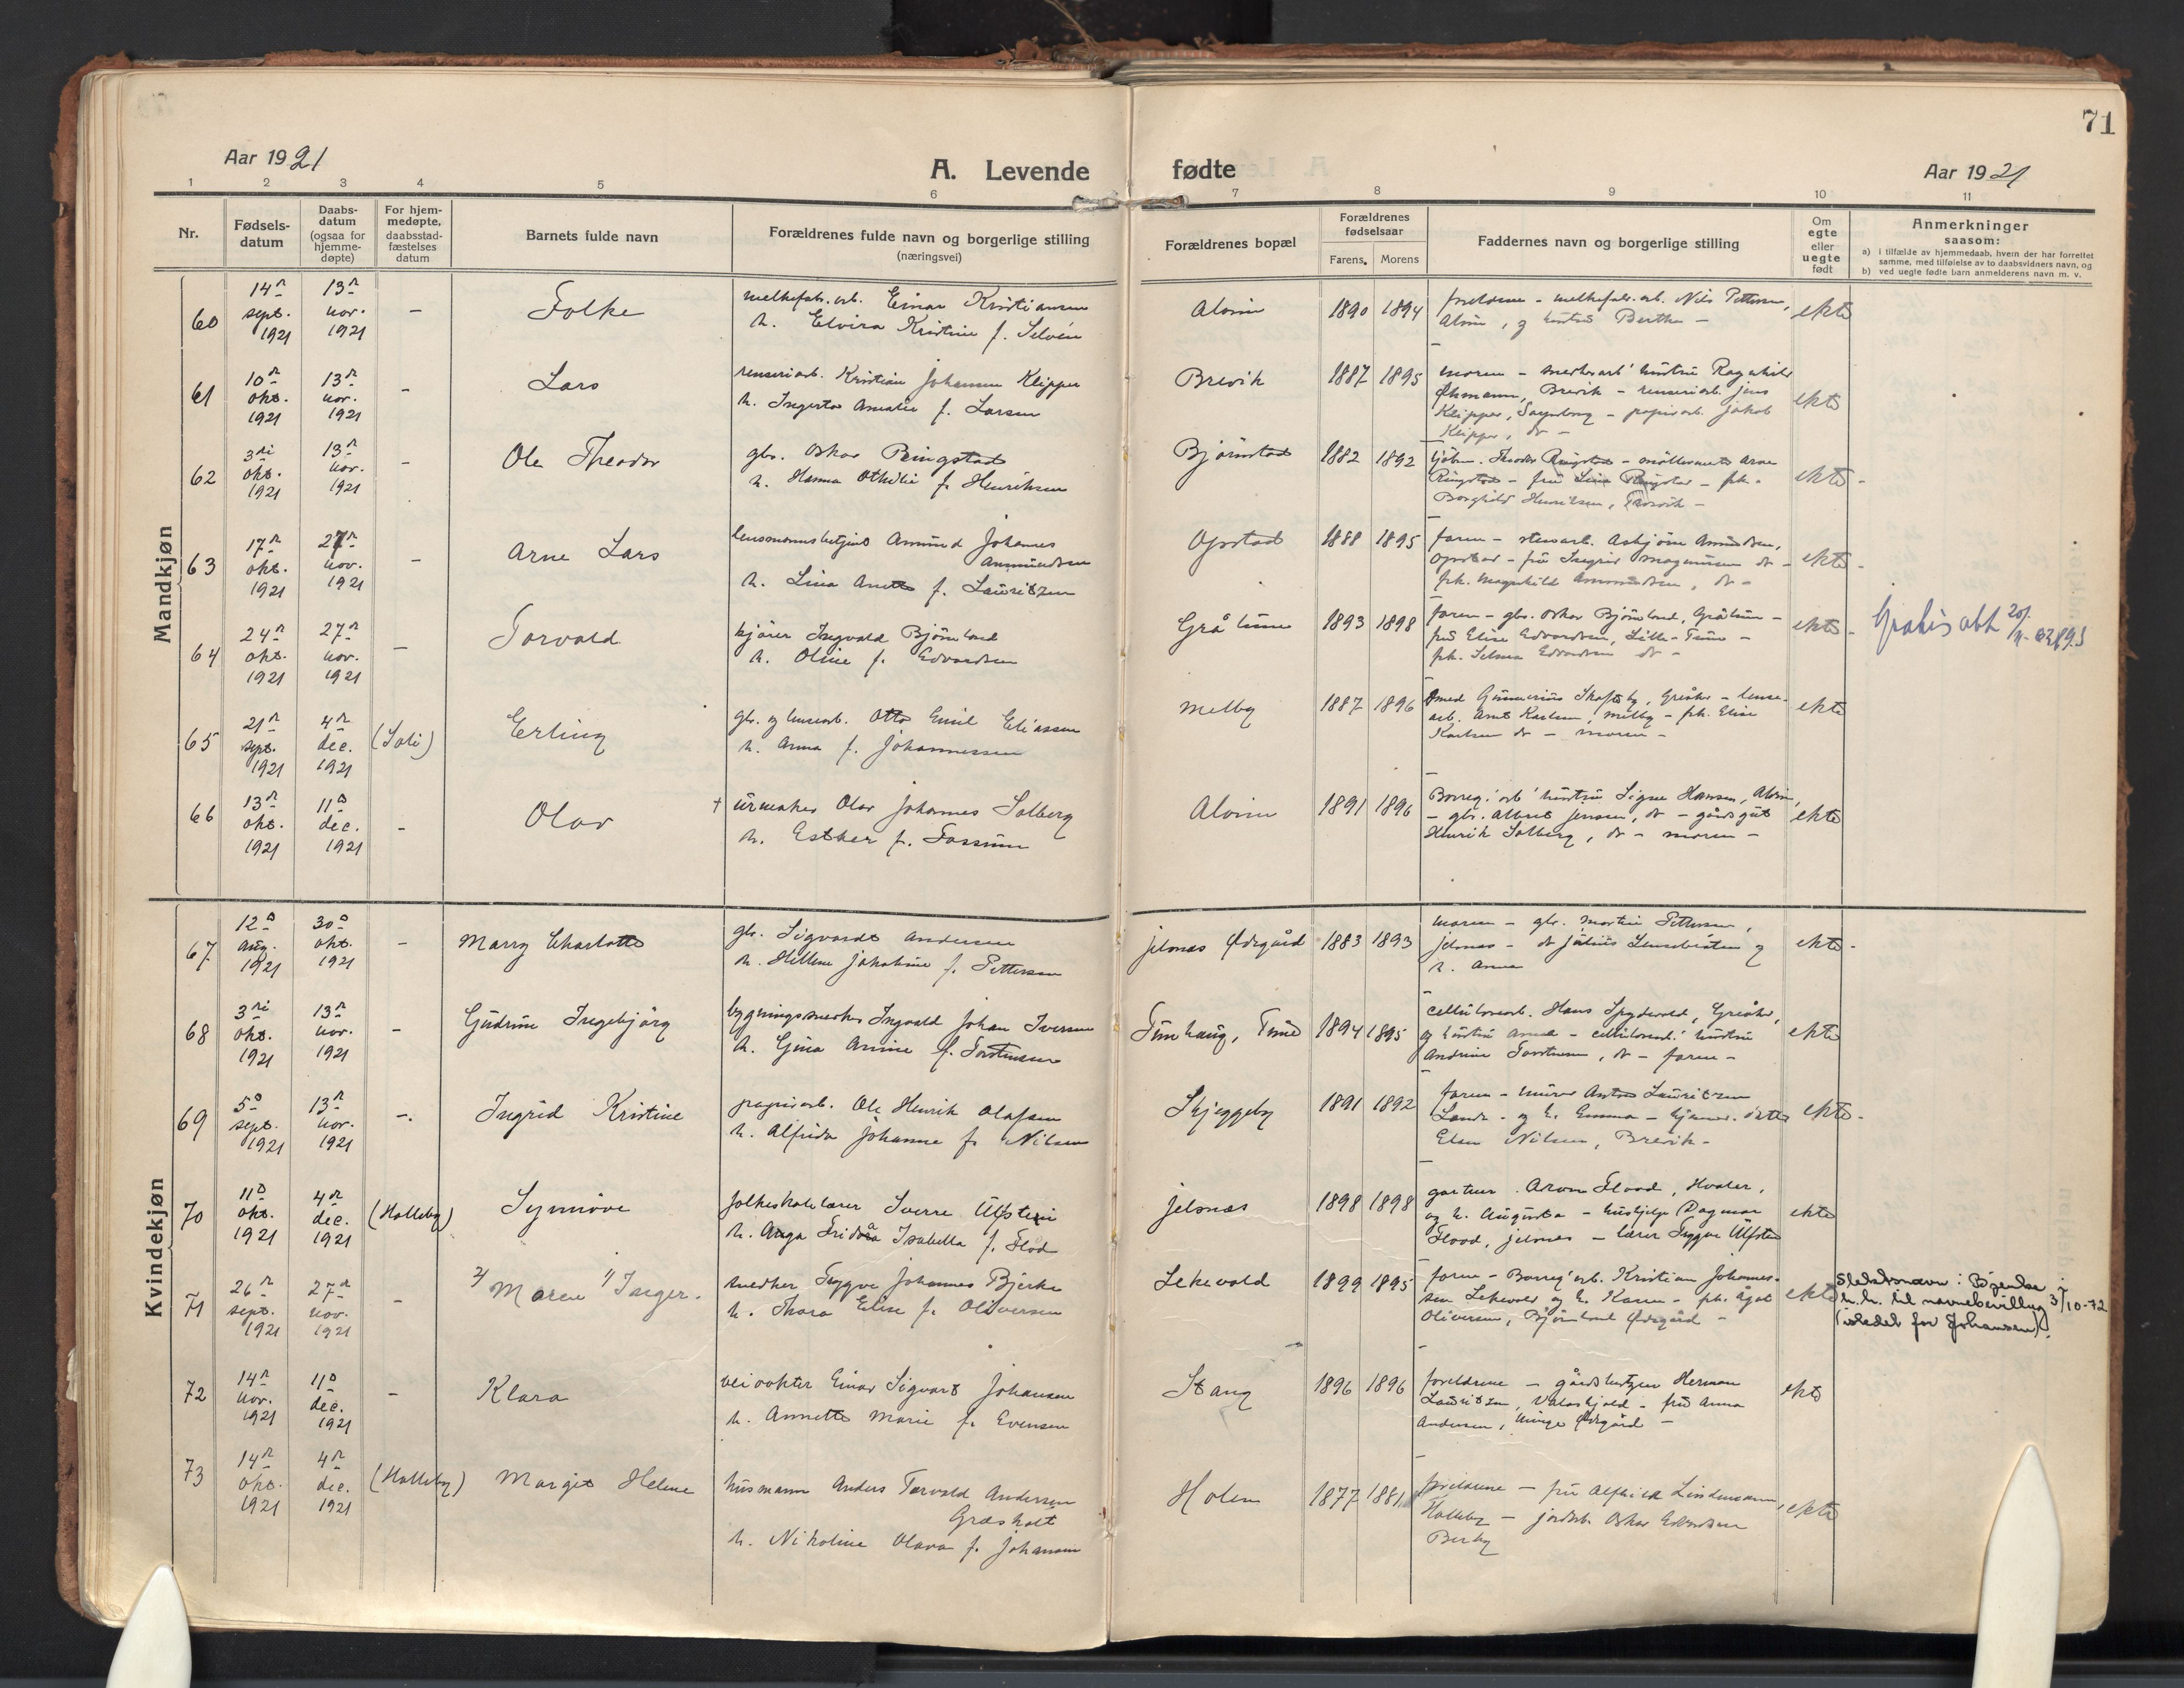 71
Aar 1921
A. Levende fødte
Aar 1921
1 2 3 4 5 6 7 8 9 10 11
Nr.
Fødsels-
datum
Daabs-
datum
(ogsaa for
hjemme-
døpte)
For hjem-
medøpte,
daabsstad-
fæstelses
datum
Barnets fulde navn
Forældrenes fulde navn og borgerlige stilling
(næringsvei)
Forældrenes bopæl
Forældrenes
fødselsaar
Farens. Morens
Faddernes navn og borgerlige stilling
Om
egte
eller
uegte
født
Anmerkninger
saasom:
a) i tilfælde av hjemmedaab, hvem der har forrettet
samme, med tilføielse av to daabsvidners navn, og
b) ved uegte fødte barn anmelderens navn m. v.
Mandkjøn
60
14de sept. 1921
13de nov. 1921
-
Folke
melkefab. arb. Einar Kristiansen
h. Elvira Kristine f. Selvén
Alvim
1890 1894
foreldrene - melkefab. arb. Nils Pettersen,
Alvim, og hustru Berthe -
ekte
61
10de okt. 1921
13de nov. 1921
-
Lars
renseriarb. Kristian Johansen Klipper
h. Ingerta Amalie f. Larsen
Brevik
1887 1895
moren - snekkerarb' hustru Ragnhild
Øhmann, Brevik - renseriarb. Jens
Klipper, - papirarb. Jakob
Klipper, do -
ekte
62
3die okt. 1921
13de nov. 1921
-
Ole Theodor
gbr. Oskar Ringstad
h. Hanna Othilie f. Henriksen
Bjørnstad
1882 1892
Theodor Ringstad - Arne
Ringstad - fru Lina Ringstad - frk.
Borghild Henriksen, -
ekte -
63
17de okt. 1921
27de nov. 1921
-
Arne Lars
lensmannsbetjent Amund Johannes
Ammundsen
h. Lina Anette f. Lauritzen
Opstad
1888 1895
faren - stenarb. Asbjørn Amundsen,
Opstad - fru Ingrid Magnussen do -
frk. Magnhild Ammundsen, do -
ekte -
64
24de okt. 1921
27de nov. 1921
-
Torvald
kjører Ingvald Bjørnland
h. Oline f. Edvardsen
Grålum
1893 1898
faren - gbr. Oskar Bjørnland, Grålum -
frk. Elise Edvardsen, Lille-Tune -
frk. Selma Edvardsen do -
ekte -
Gratis att 20/
65
21de sept. 1921
4de dec. 1921
(Soli)
Erling
gbr. og lensearb. Otto Emil Eliassen
h. Anna f. Johannessen
Melby
1887 1896
smed Gunnerius Skoftby, Greåker - lense-
arb. Arnt Karlsen, Melby - frk. Elise
Karlsen do - moren -
ekte
66
13de okt. 1921
11te dec. 1921
-
Olav
+ urmaker Olav Johannes Solberg
h. Esther f. Fossum
Alvim
1891 1896
Borreg.'arb' hustru Signe Hansen, Alvim,
- gbr. Albert Jensen, do - gårdsgut
Henrik Solberg, do - moren -
ekte
Kvindekjøn
67
12te aug. 1921
30te okt. 1921
-
Marry Charlotte
gbr. Sigvardt Andersen
h. Hellene Jakobine f. Pettersen
Jelsnes Ødegård
1883 1893
moren - gbr. Martin Pettersen,
Jelsnes - do Julius og
h. Anna
ekte -
68
3die okt. 1921
13de nov. 1921
-
Gudrun Ingebjørg
bygningssnekker Ingvald Johan Iversen
h. Gina Amine f. Torstensen
Tunhaug, Tune
1894 1895
cellulosearb. Hans Spydevold, Greåker,
og hustru Anna - cellulosearb.' hustru
Andrine Torstensen, do - faren -
ekte
69
5te sept. 1921
13de nov. 1921
-
Ingrid Kristine
papirarb. Ole Henrik Olafsen
h. Alfrida Johanne f. Nilsen
Skjeggeby
1891 1892
faren - murer Anton Lauritzen
Lande - og h. Emma - hjemmev. datter
Elsa Nilsen, Brevik -
ekte -
70
11te okt. 1921
4de dec. 1921
(Holleby)
Synnøve
folkeskolelærer Sverre Ulfsten
h. Aaga Frida Isabella f. Flod
Jelsnes
1898 1898
gartner Flood, Hvaler,
og h. Augusta - hushjelp Dagmar
Flood, Jelsnes - lærer Trygve Ulfsten
ekte
71
26de sept. 1921
27de nov. 1921
-
2/ Maren 1/ Inger.
snedker Trygve Johannes Bjerke
h. Thora Elise f. Oliversen
Lekevold
1899 1895
faren - Borreg'arb. Kristian Johannes-
sen Lekevold og h. Karen - frk. Agot
Oliversen, Bjørnland Ødegård -
ekte
Slektsnavn: Bjerke i
h.h. til navnebevilling 3/10-72
(istedet for Johansen).
72
14de nov. 1921
11te dec. 1921
-
Klara
veivokter Einar Sigvart Johansen
h. Annette Marie f. Evensen
Stang
1896 1896
foreldrene - gårdbruger Herman
Lauritzen, Valaskjold - fru Anna
Andersen, Minge Ødegård -
ekte
73
14de okt. 1921
4de dec. 1921
(Holleby)
Margit Helene
husmann Anders Torvald Andersen
Græsholt
h. Nikoline Olava f. Johansen
Holm
1877 1881
foreldrene - fru Alfhild Lindemann,
Holleby - jordarb. Oskar Edvardsen
Berby
ekte